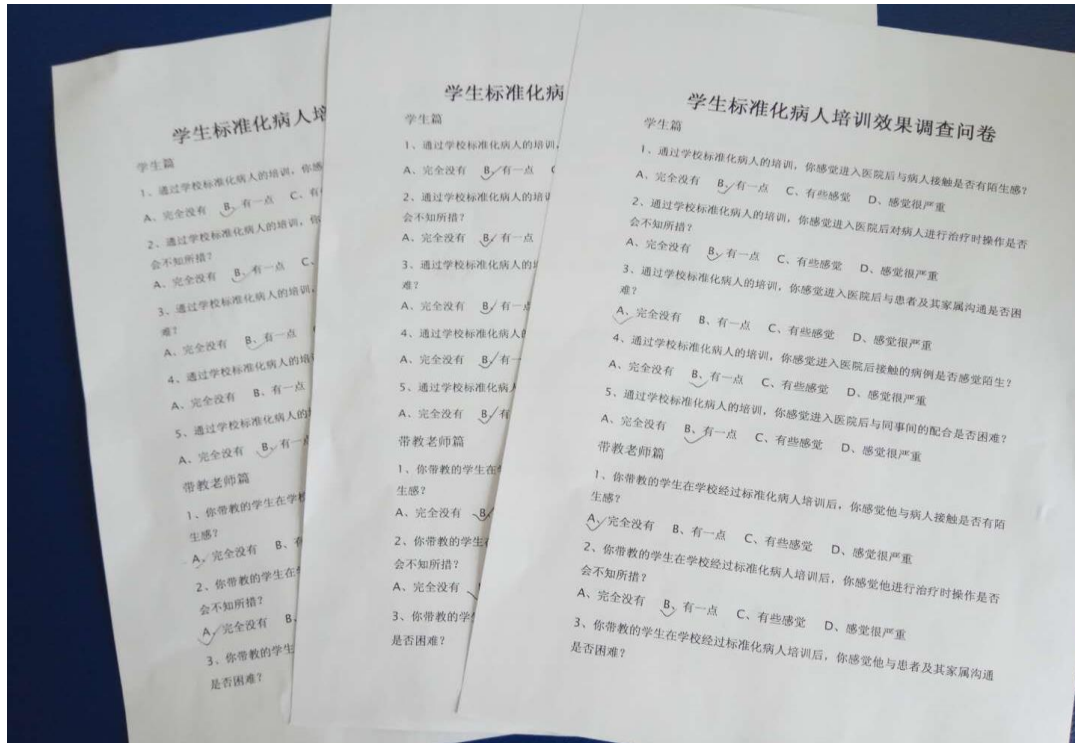 学生标准化病人培
学生篇
1、通过学校标准化病人的培训，你感
A、完全没有 B、有一点 C、有
2、通过学校标准化病人的培训，你
会不知所措？
A、完全没有 B、有一点 C、
3、通过学校标准化病人的培训，
难？
A、完全没有 B、有一点
4、通过学校标准化病人的培
A、完全没有 B、有一点
5、通过学校标准化病人的
A、完全没有 B、有一
带教老师篇
1、你带教的学生在学校
生感？
A、完全没有 B、有
2、你带教的学生在
会不知所措？
A、完全没有 B、
3、你带教的学生
是否困难？
学生标准化病
学生篇
1、通过学校标准化病人的培训，
A、完全没有 B、有一点
2、通过学校标准化病人的培训
会不知所措？
A、完全没有 B、有一点
3、通过学校标准化病人的
难？
A、完全没有 B、有一
4、通过学校标准化病人
A、完全没有 B、有一
5、通过学校标准化病人
A、完全没有 B、有
带教老师篇
1、你带教的学生在
生感？
A、完全没有 B、
2、你带教的学生
会不知所措？
A、完全没有
3、你带教的学
是否困难？
学生标准化病人培训效果调查问卷
学生篇
1、通过学校标准化病人的培训，你感觉进入医院后与病人接触是否有陌生感？
A、完全没有 B、有一点 C、有些感觉 D、感觉很严重
2、通过学校标准化病人的培训，你感觉进入医院后对病人进行治疗时操作是否
会不知所措？
A、完全没有 B、有一点 C、有些感觉 D、感觉很严重
3、通过学校标准化病人的培训，你感觉进入医院后与患者及其家属沟通是否困
难？
A、完全没有 B、有一点 C、有些感觉 D、感觉很严重
4、通过学校标准化病人的培训，你感觉进入医院后接触的病例是否感觉陌生？
A、完全没有 B、有一点 C、有些感觉 D、感觉很严重
5、通过学校标准化病人的培训，你感觉进入医院后与同事间的配合是否困难？
A、完全没有 B、有一点 C、有些感觉 D、感觉很严重
带教老师篇
1、你带教的学生在学校经过标准化病人培训后，你感觉他与病人接触是否有陌
生感？
A、完全没有 B、有一点 C、有些感觉 D、感觉很严重
2、你带教的学生在学校经过标准化病人培训后，你感觉他进行治疗时操作是否
会不知所措？
A、完全没有 B、有一点 C、有些感觉 D、感觉很严重
3、你带教的学生在学校经过标准化病人培训后，你感觉他与患者及其家属沟通
是否困难？